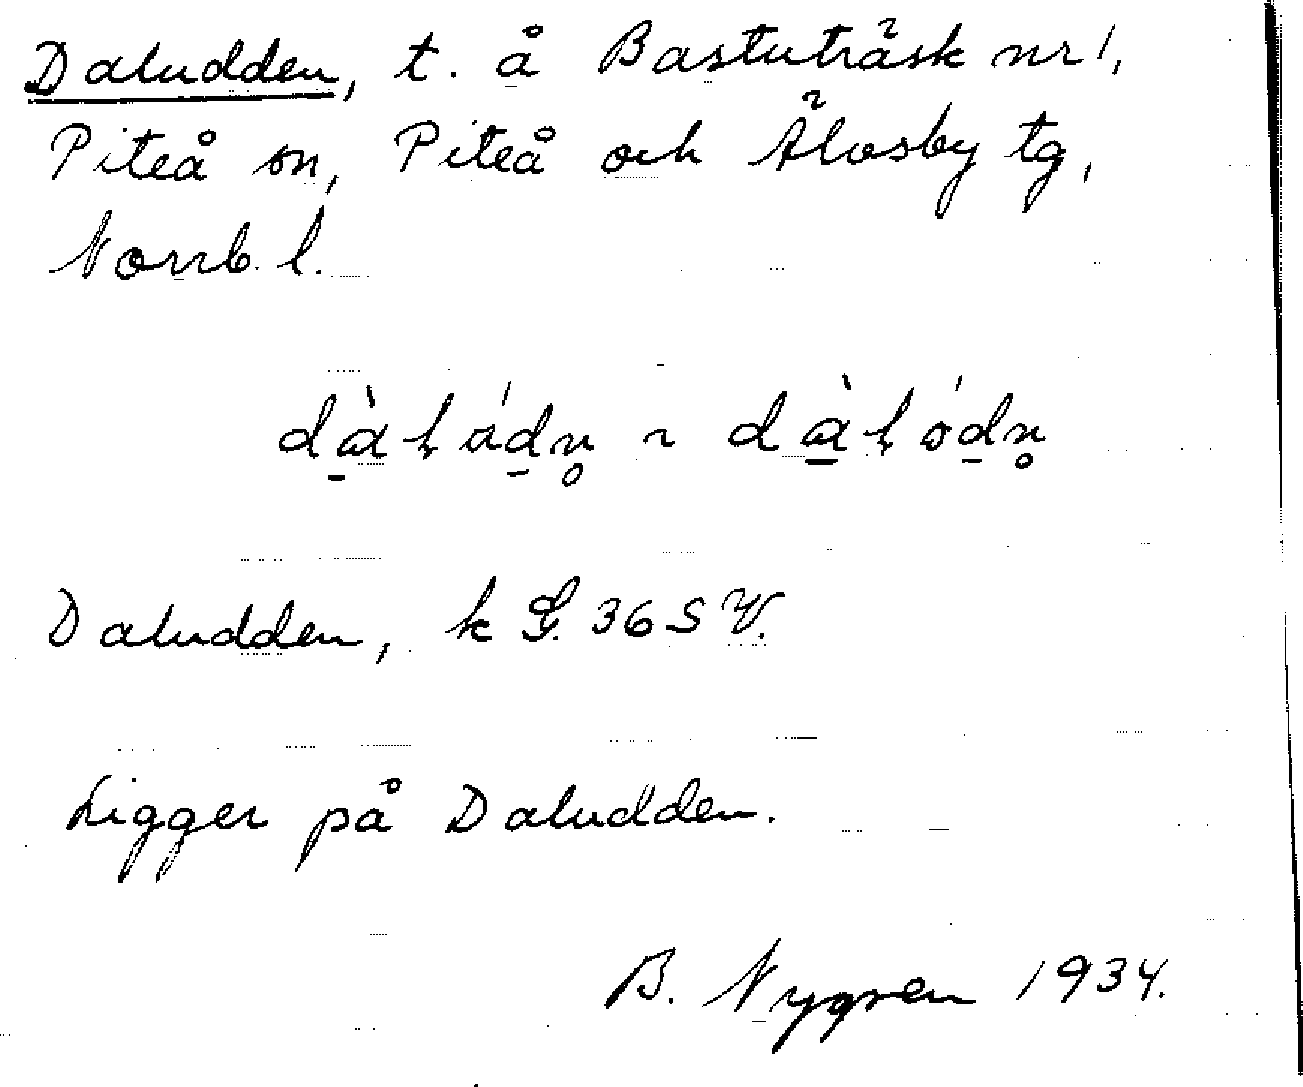 Daludden, t. å Bastuträsk nr 1,
Piteå sn, Piteå och Älvsby tg,
Norrb. l.
Daludden, k G. 36 S V.
Ligger på Daludden.
B. Nygren 1934.